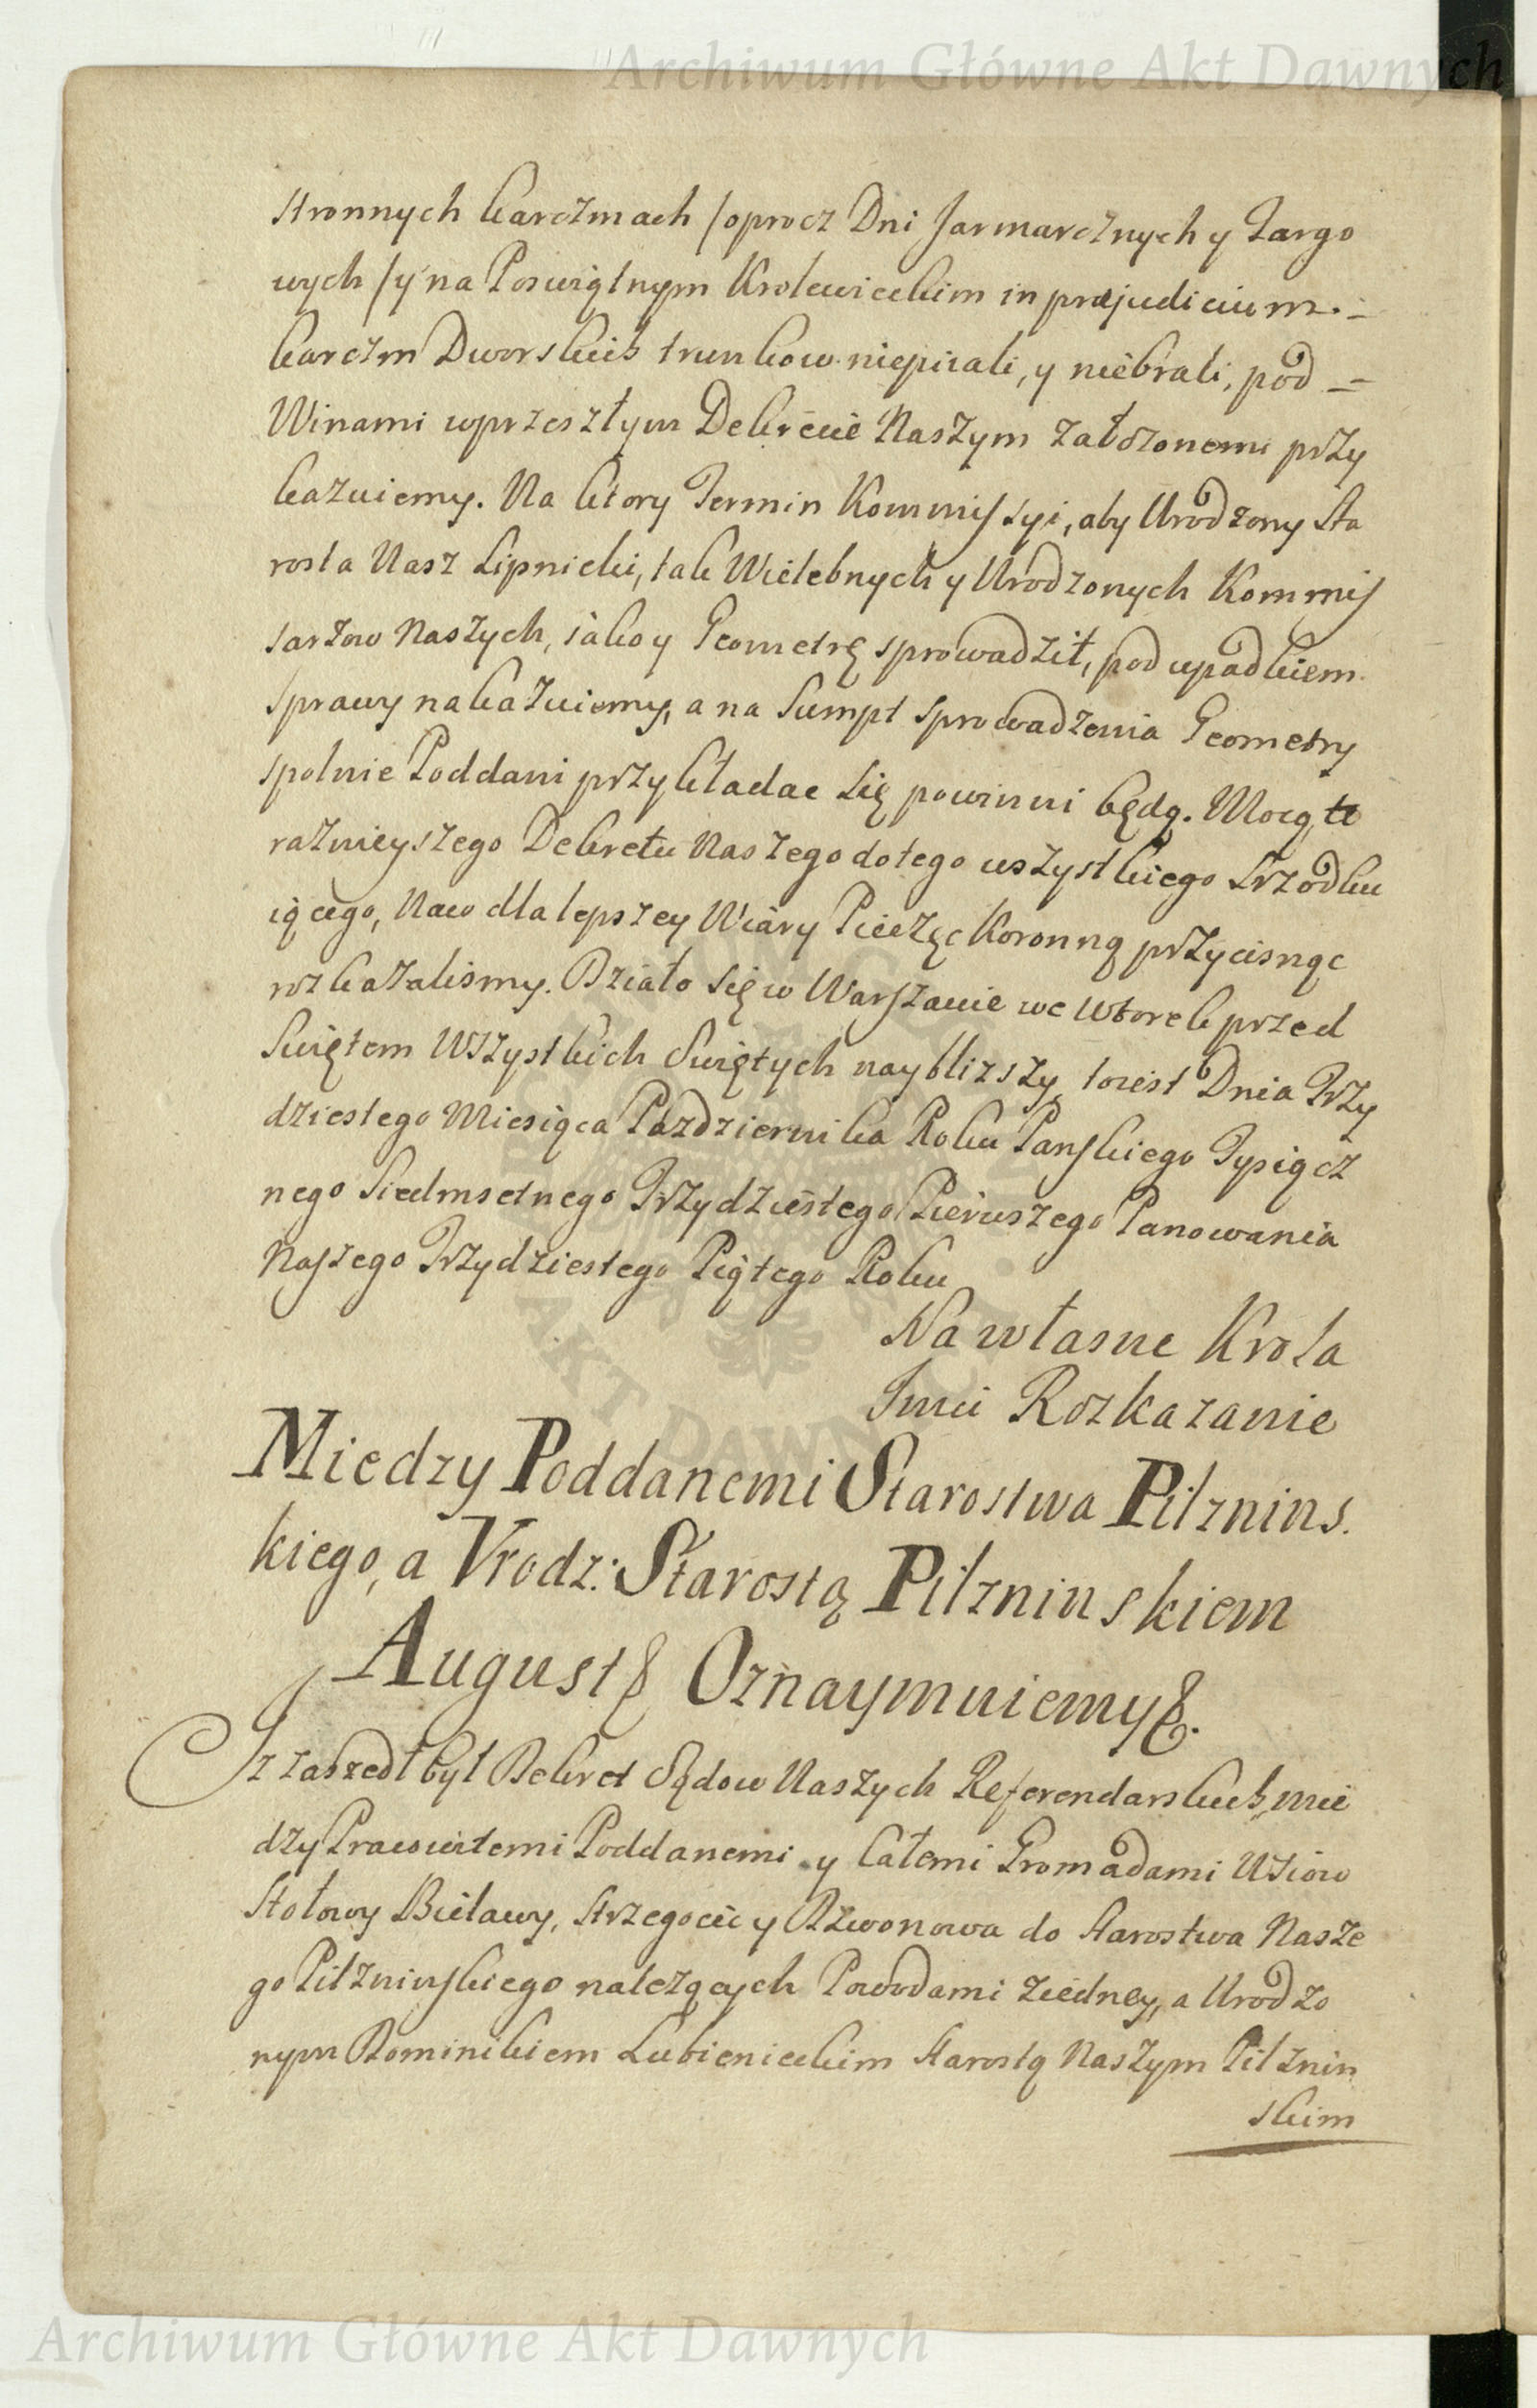 Archiwum Główne Akt Dawnych
stronnych karczmach /oprocz Dni Jarmarcznych y Targo
wych /y na Poswiętnym Krolewieckim in præjudicium.
karczm Dworskich trunkow niepiiali, y niebrali, pod
Winami wprzeszłym Dekrecie Naszym założonemi przy
kazuiemy. Na ktory Termin Kommissyi, aby Urodzony Sta
rosta Nasz Lipnicki, tak Wielebnych y Urodzonych Kommis
sarzow Naszych, iako y Geometrę sprowadził, pod upadkiem
sprawy nakazuiemy, a na Sumpt Sprowadzenia Geometry
spolnie Poddani przykładac Się powinni będą. Mocą te
raznieyszego Dekretu Naszego dotego wszystkiego Srzodku
iącego, Naco dla lepszey Wiary Pieczęc Koronną przycisnąc
rozkazalismy. Działo Się w Warszawie we Wtorek przed
Swiętem Wszystkich Swiętych nayblizszy, toiest Dnia Trzy
dziestego Miesiąca Pazdziernika Roku Panskiego Tysiącz
nego Siedmsetnego Trzydziestego Pierwszego Panowania
Naszego Trzydziestego Piątego Roku
Na własne Krola
Jmci Rozkazanie
Miedzy Poddanemi Starostwa Pilznins.
kiego, a Vrodz: Starostą Pilzninskiem
August& Oznaymuiemy&.
Jz zaszedł był Dekret Sądow Naszych Referendarskich, mie
dzy Pracowitemi Poddanemi y Całemi Gromadami Wsiow
Stołowy Bielawy, Strzegocic y Dzwonowa do Starostwa Nasze
go Pilzninskiego należących Powodami ziedney, a Urodzo
nym Dominikiem Lubienieckim Starostą Naszym Pilznin
skim
Archiwum Główne Akt Dawnych